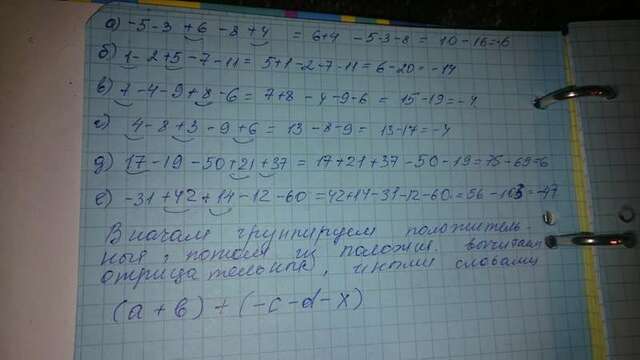 а) -5-3+6-8+4 = 6+4-5-3-8 = 10-16=-6
б) 1-2+5-7-11= 5+1-2-7-11=6-20=-14
в) 7-4-9+8-6= 7+8-4-9-6= 15-19=-4
г) 4-8+3-9+6= 13-8-9= 13-17=-4
д) 17-19-50+21+37= 17+21+37-50-19=75-69=6
е) -31+42+14-12-60=42+14-31-12-60=56-103=-47
Вначале группируем положитель-
ныя, потом из положит. вычитаем
отрицательныя, иными словами
(a+b)+(-c-d-x)